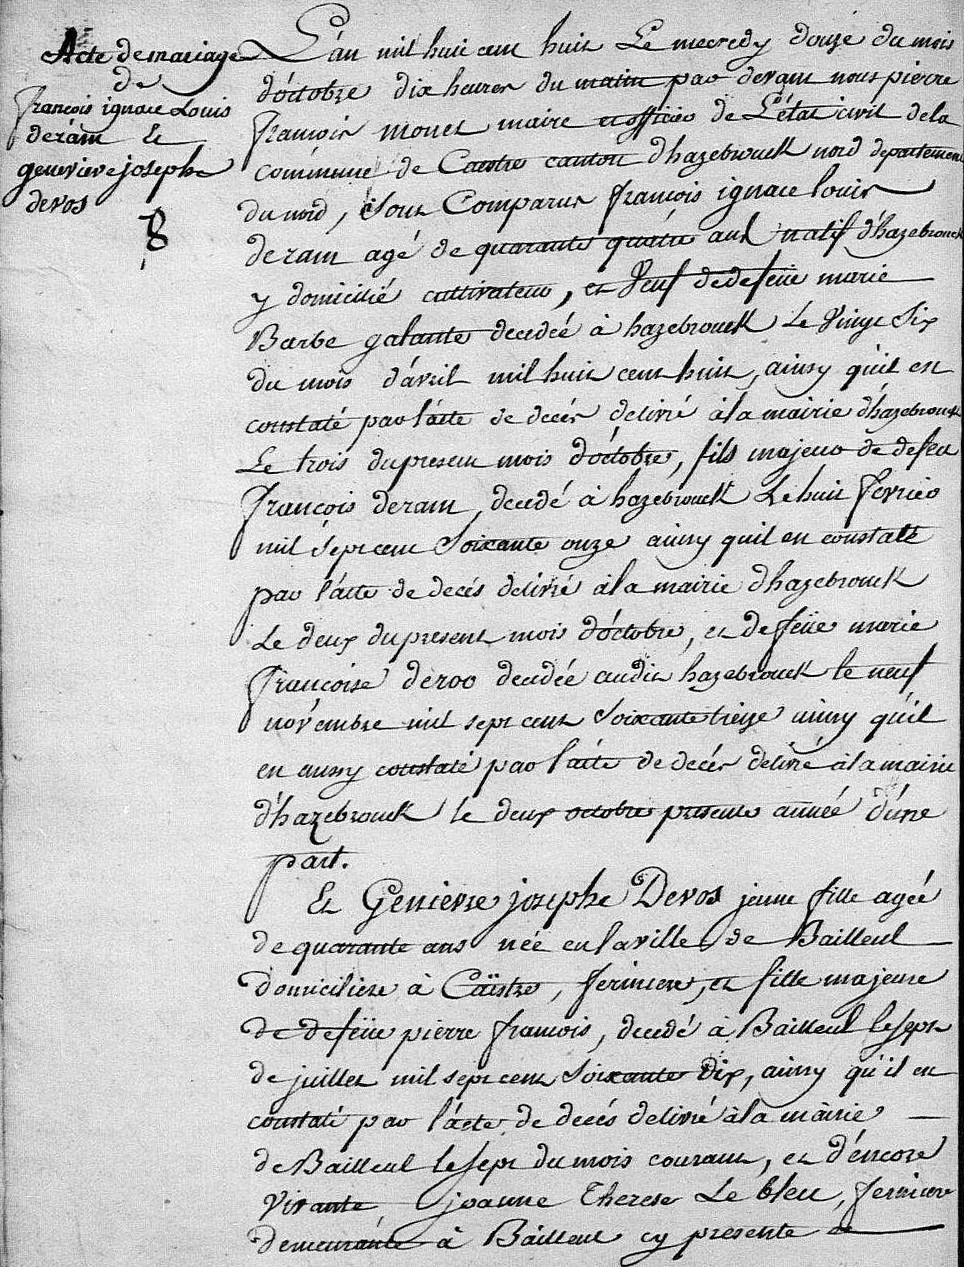 Acte de mariage
de
françois ignace Louis
deram et
genevieve josephe
devos
8
L'an mil huit cent huit Le mecredy douze du mois
d'octobre dix heures du matin par devant nous pierre
françois monet maire et officier de L'état civil de la
commune de Caestre canton d'hazebrouck nord departement
du nord, sont Comparus françois ignace louis
deram agé de quarante quatre ans natif d'hazebrouck
y domicilié cultivateur, et Veuf de defeüe marie
Barbe galante decedée à hazebrouck Le Vingt Six
du mois d'avril mil huit cent huit, ainsy qu'il est
constaté par l'acte de decés delivré à la mairie d'hazebrouck
Le trois du present mois d'octobre, fils majeur de defeu
françois deram, decedé à hazebrouck Le huit fevrier
mil sept cent soixante onze ainsy qu'il en constaté
par l'acte de decés delivré à la mairie d'hazebrouck
Le deux du present mois d'octobre, et de feüe marie
françoise deroo decedée audit hazebrouck le neuf
novembre mil sept cent soixante treize ainsy qu'il
en aussy constaté par l'acte de decés delivré à la mairie
d'hazebrouck le deux octobre presente année d'une
part.
Et Genieve josephe Devos jeune fille agée
de quarante ans née en la ville de Bailleul
domiciliere à Caïstre, fermiere, et fille majeure
de defeüe pierre francois, decedé à Bailleul le sept
de juillet mil sept cent soixante Dix, ainsy qu'il en
constaté par l'acte de decés delivré à la mairie
de Bailleul le sept du mois courant, et d'encore
Vivante joanne Therese Le bleu, fermiere
demeurante à Bailleul cy presente